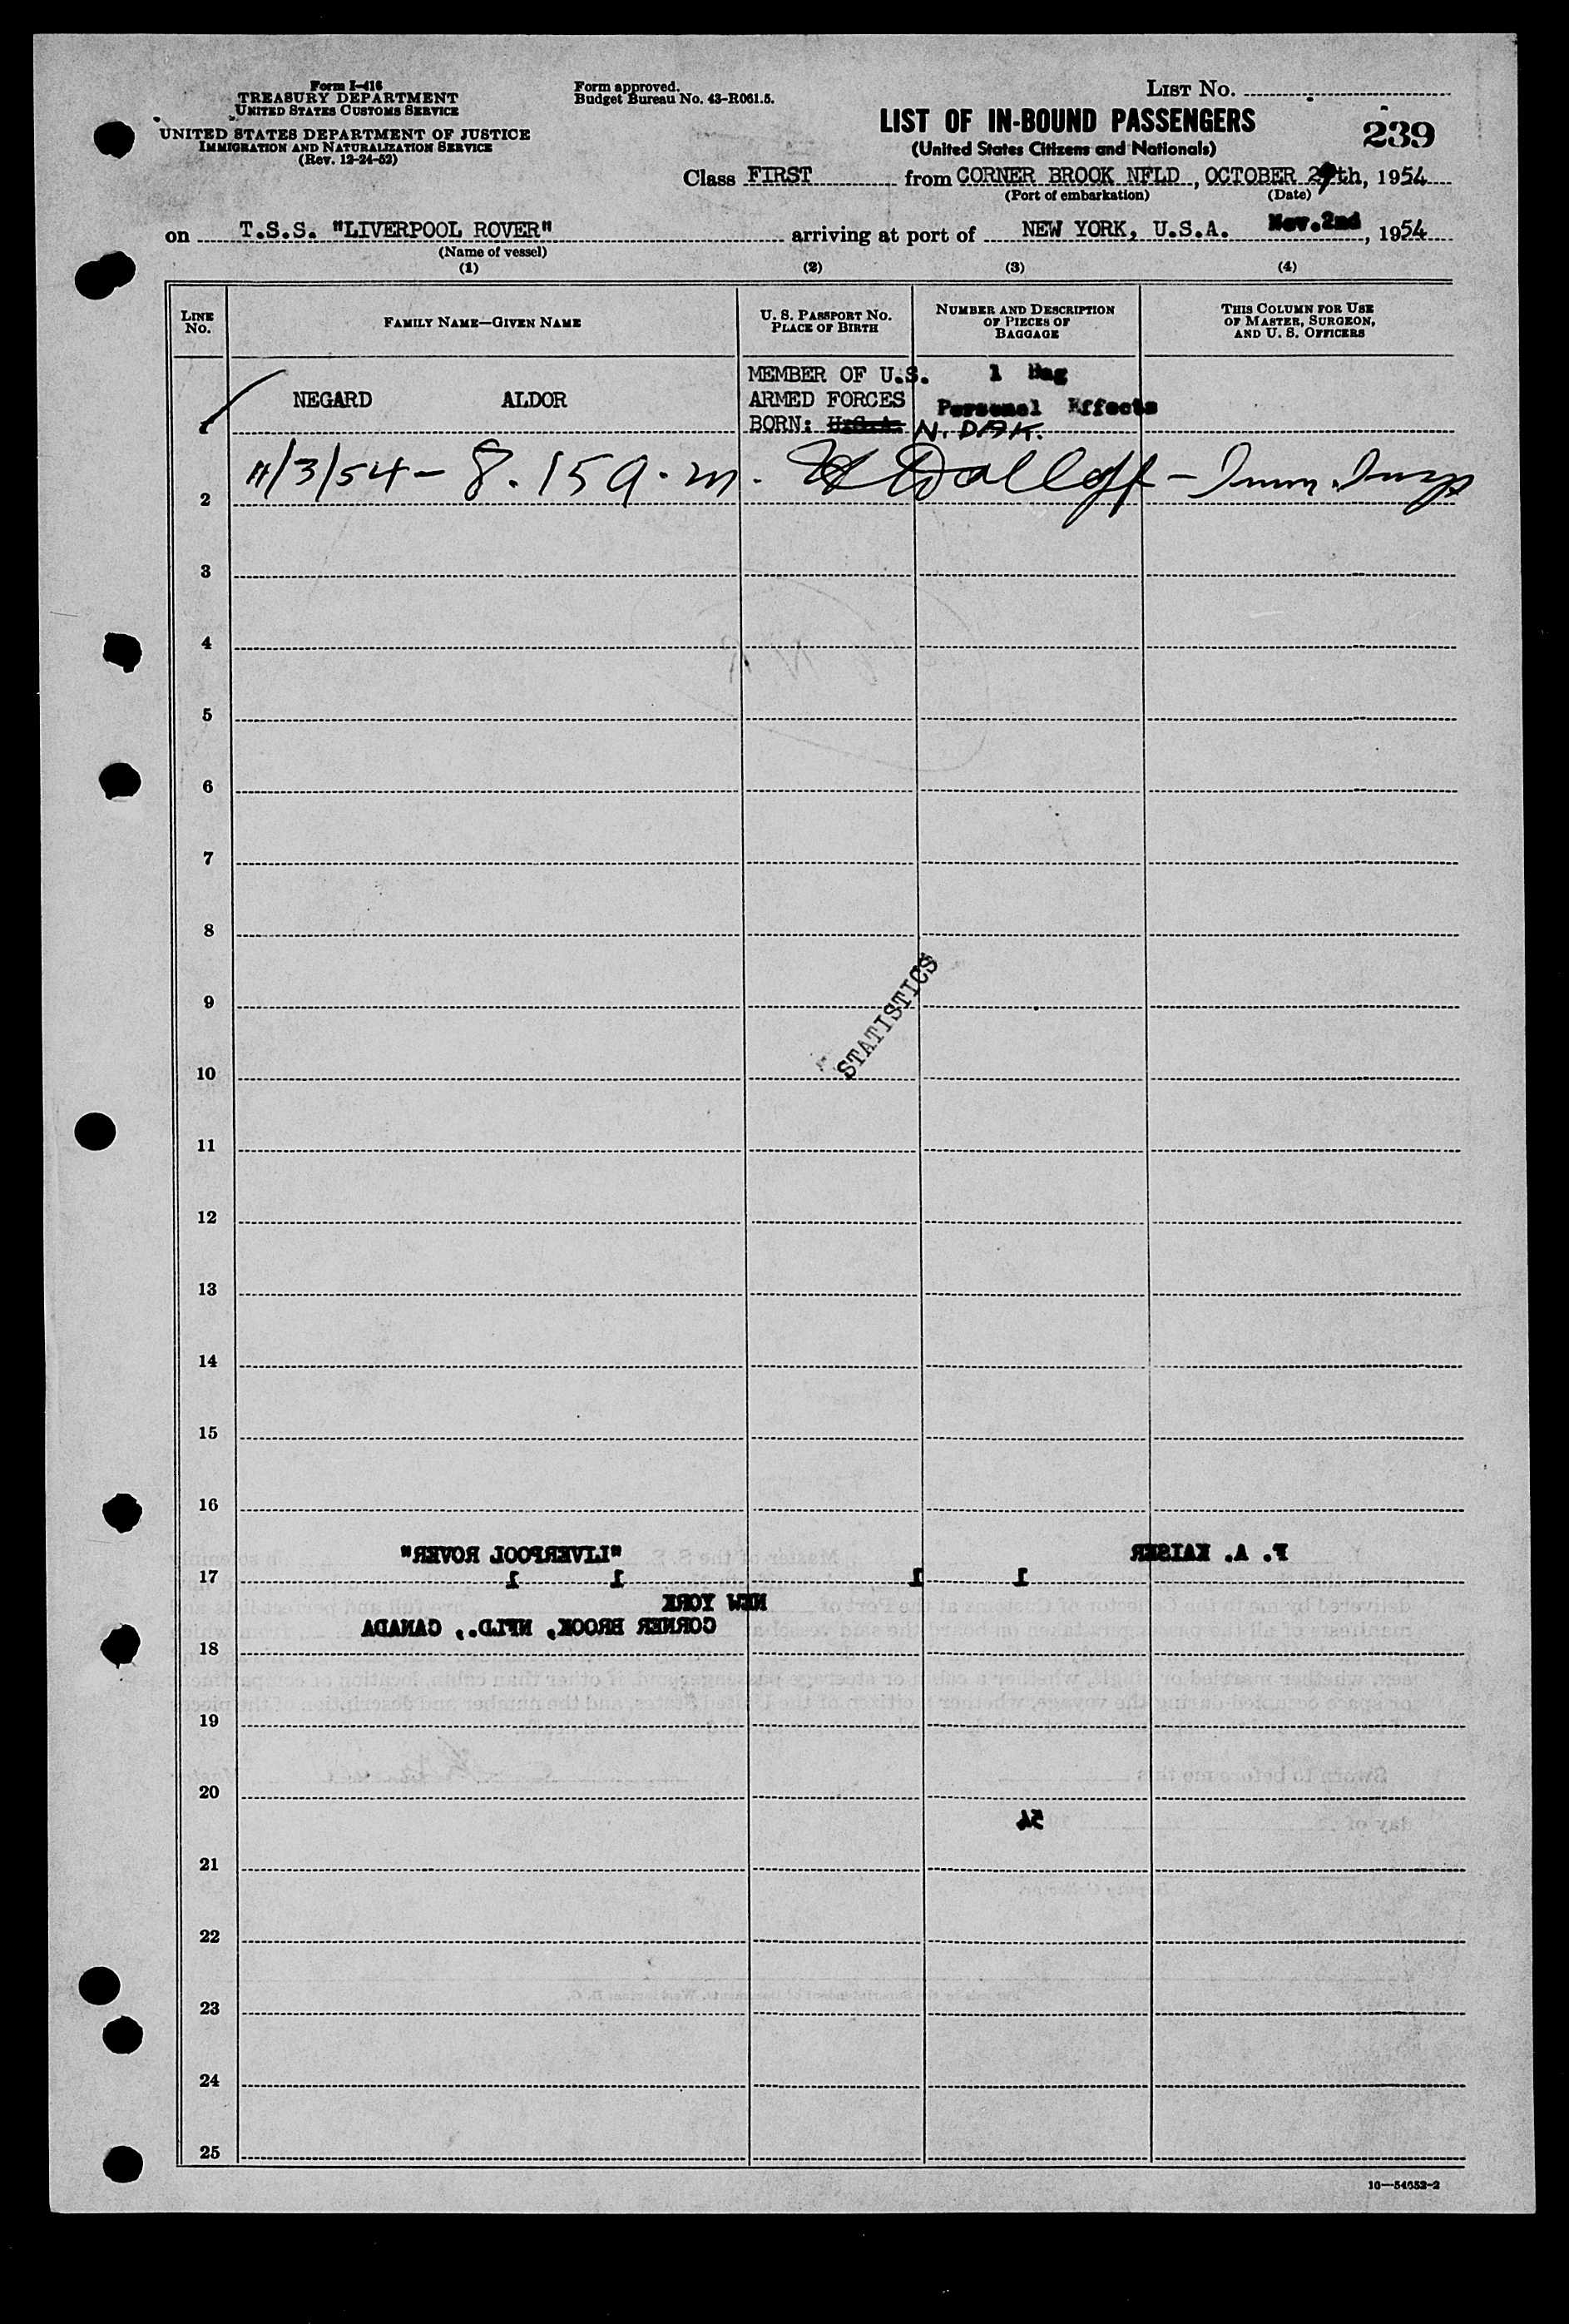 Form I-416
TREASURY DEPARTMENT
UNITED STATES CUSTOMS SERVICE
UNITED STATES DEPARTMENT OF JUSTICE
IMMIGRATION AND NATURALIZATION SERVICE
(Rev. 12-24-52)
Form approved.
Budget Bureau No. 43-R061.5.
LIST No.
LIST OF IN-BOUND PASSENGERS
(United States Citizens and Nationals)
239
Class FIRST from CORNER BROOK NFLD, OCTOBER 29th, 1954
(Port of embarkation) (Date)
on T.S.S. "LIVERPOOL ROVER" arriving at port of NEW YORK, U.S.A. Nov.2nd, 1954
(Name of vessel)
(1) (2) (3) (4)
LINE No. FAMILY NAME—GIVEN NAME U. S. PASSPORT No. PLACE OF BIRTH NUMBER AND DESCRIPTION OF PIECES OF BAGGAGE THIS COLUMN FOR USE OF MASTER, SURGEON, AND U. S. OFFICERS
MEMBER OF U.S. 1 Bag
NEGARD ALDOR ARMED FORCES Personel Effects
BORN: U.S.A. N. DAK.
11/3/54 - 8.15 a.m. - Imm. Insp
2
3
4
5
6
7
8
9
STATISTICS
10
11
12
13
14
15
16
"LIVERPOOL ROVER" F. A. KAISER
17 1 1 1 1
NEW YORK
CORNER BROOK, NFLD., CANADA
18
19
Sworn to before me this
20
54
day of
21
22
23
24
25
16—54652-2